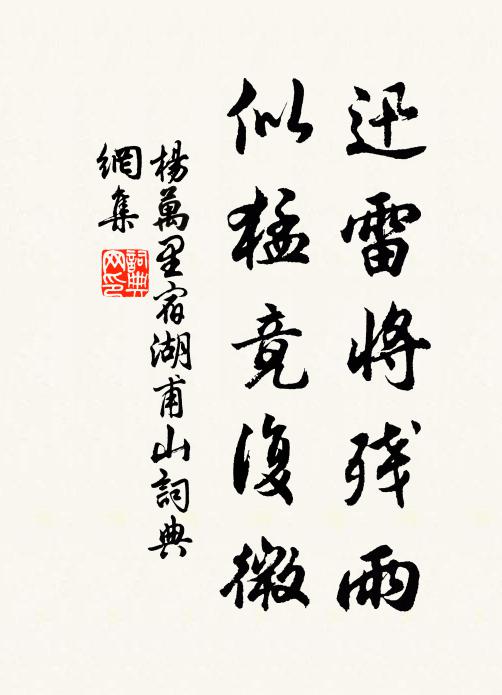 迅雷將残雨
似猛竟復微
楊萬里宿湖甫山詞典
網集
詞典
网印